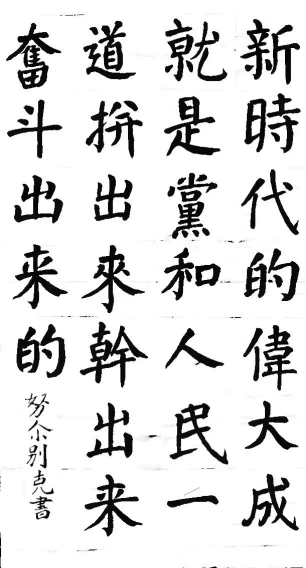 新時代的偉大成
就是黨和人民一
道拚出來幹出来
奮斗出来的
努尒别克書